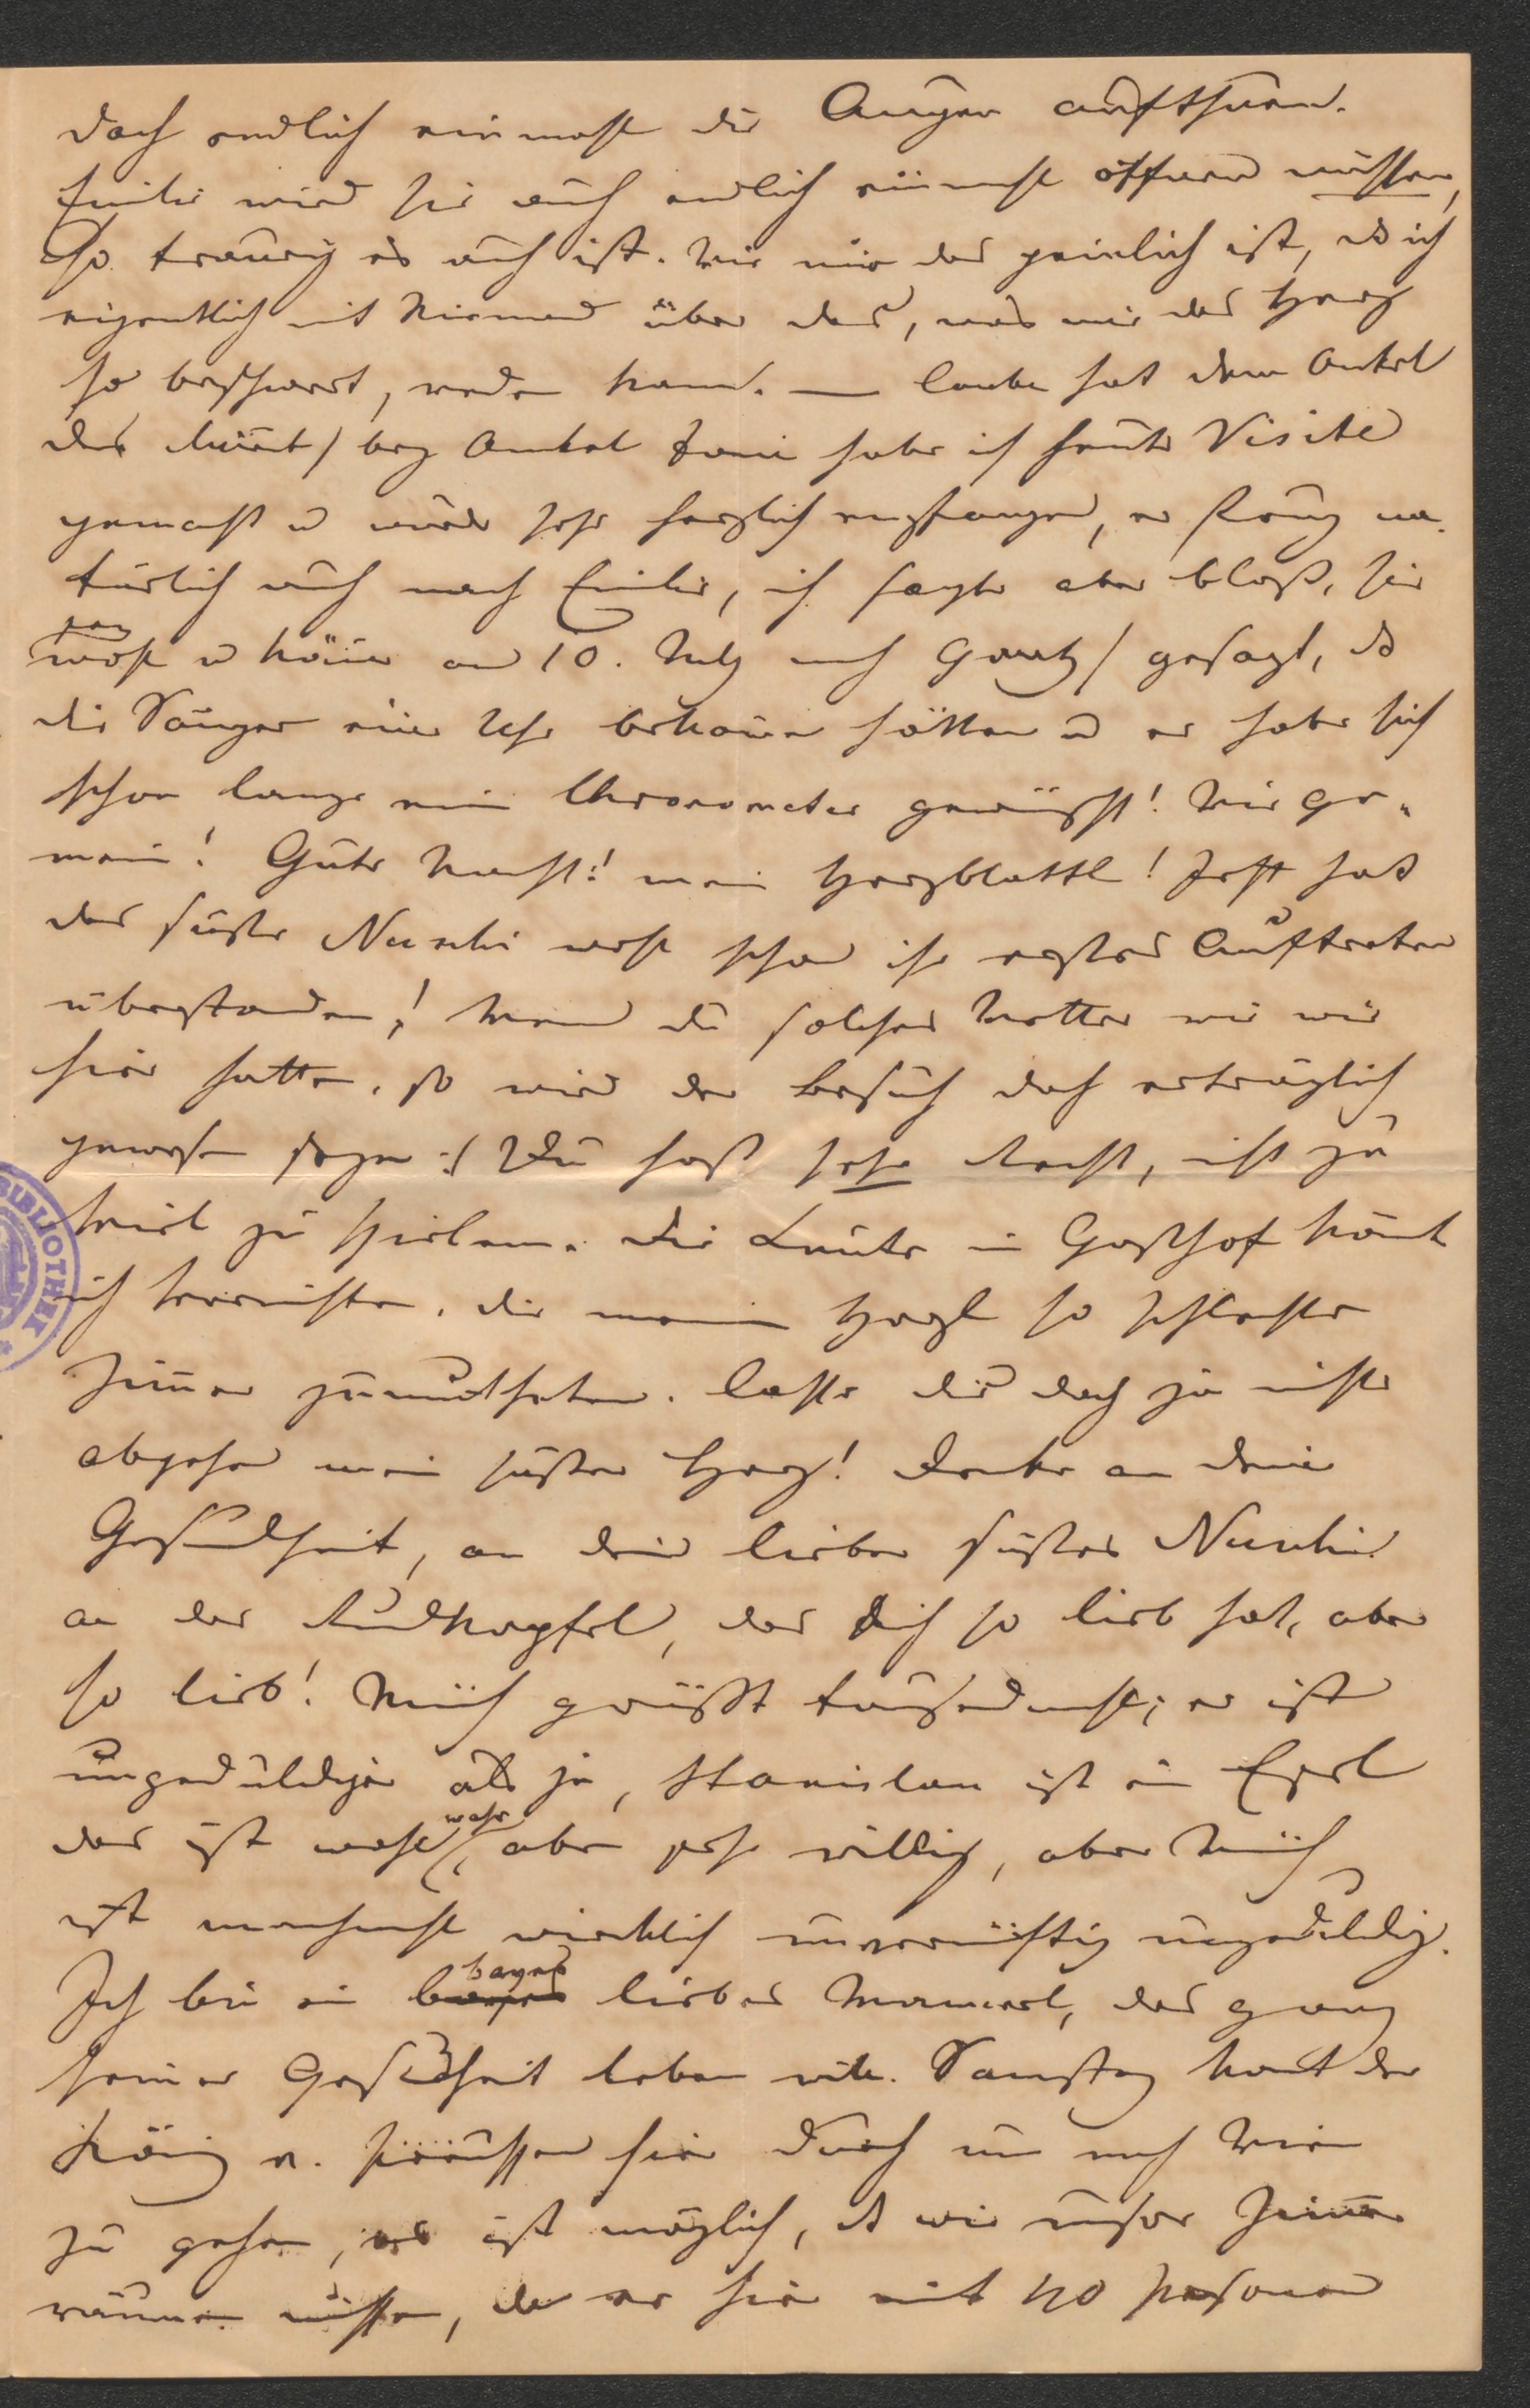 doch endlich einmahl die Augen aufthuen.
Emilie wird sie auch endlich einmahl öffnen müssen,
so traurig es auch ist. Wie mir das peinlich ist, dß ich
eigentlich mit Niemand über das, was mir das Herz
so beschwert, reden kann. — Laube hat dem Onkel
das bey Onkel Toni habe ich heute Visite
gemacht u wurde sehr herzlich empfangen, er frug na-
türlich auch nach Emilie, ich sagte aber bloß, sie
wohl u käme am 10. July nach gesagt, dß
die Sänger eine Uhr bekommen hätten u er habe sich
schon lange ein Chronometer gewünscht! Wie ge-
mein! Gute Nacht! mein Herzblattl! Jetzt hat
das süße Nuschi wohl schon ihr erstes Auftreten
überstanden! Wenn du solches Wetter wie wir
hier hatten, so wird der Besuch doch erträglich
gewesen seyn! Du hast sehr Recht, nicht zu
viel zu spielen. Die Leute im Gasthof könnt
ich vernichten, die mein Herzl so schlechte
Zimmer zumutheten. Lasse dir doch ja nichts
abgehen mein süßes Herz! Denke an deine
Gesundheit, an dein liebes süßes Nuschi
an das , das dich so lieb hat, aber
so lieb! grüßt tausendmahl; er ist
ungeduldiger als je, Stanislaus ist ein Esel
das ist wohl wahr, aber sehr willig, aber
ist manchmahl wirklich unvernünftig ungeduldig.
Ich bin ein braves liebes , das ganz
seiner Gesundheit leben will. Samstag kommt der
König v. Preussen hier durch um nach Wien
zu gehen, es ist möglich, dß wir unsere Zimmer
räumen müssen, da er hier mit 40 Personen
BIBLIOTHEK